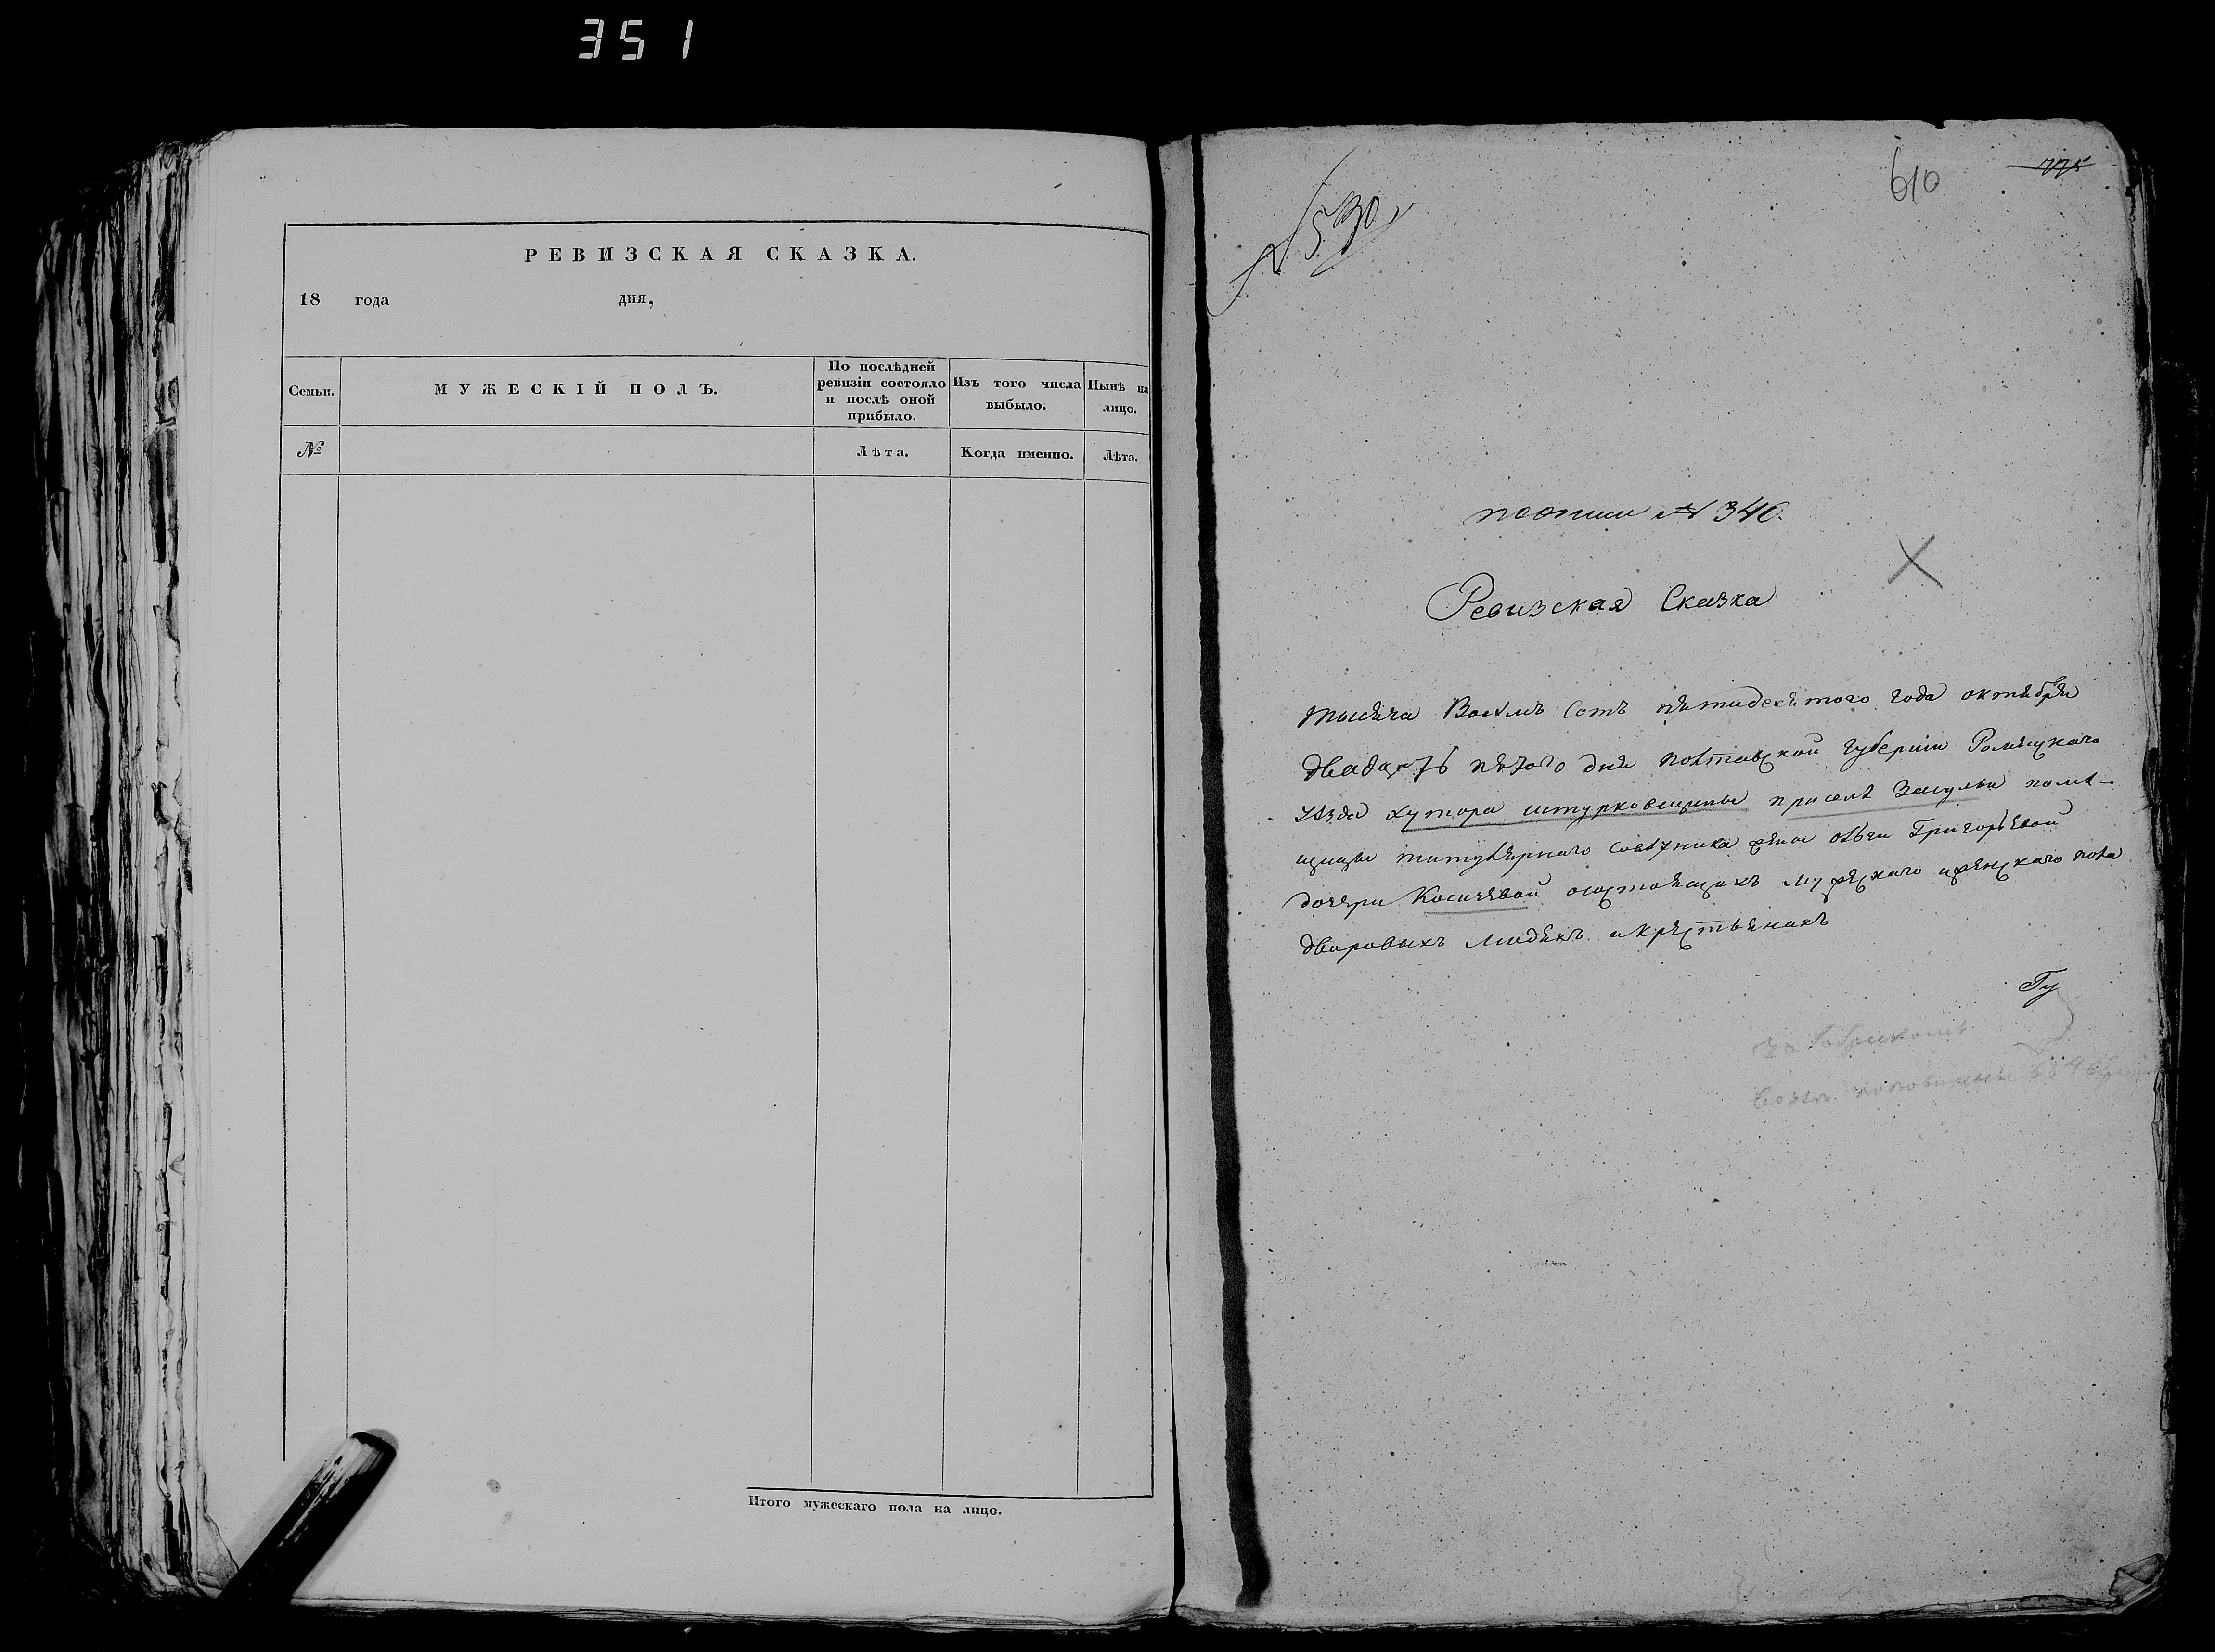 351
РЕВИЗСКАЯ СКАЗКА.
18 года дня,
Семьи.
МУЖЕСКІЙ ПОЛЪ.
По послѣдней ревизіи состояло и послѣ оной прибыло.
Изъ того числа выбыло.
Нынѣ на лицо.
№
Лѣта.
Когда именно.
Лѣта.
Итого мужескаго пола на лицо.
610
775
№ 530
поописи № 340.
Ревизская Сказка
тысяча Восемъ сотъ пятидесятого года октября
двадцать пятого дня полтавской губерніи Роменского
уѣзда хутора штурковщины приселѣ Засульи помѣ-
щицы титулярного совѣтника жены ольги Григорьевой
дочери Косичевой осостоящихъ мужеского иженского пола
дворовыхъ людяхъ икрестьянахъ